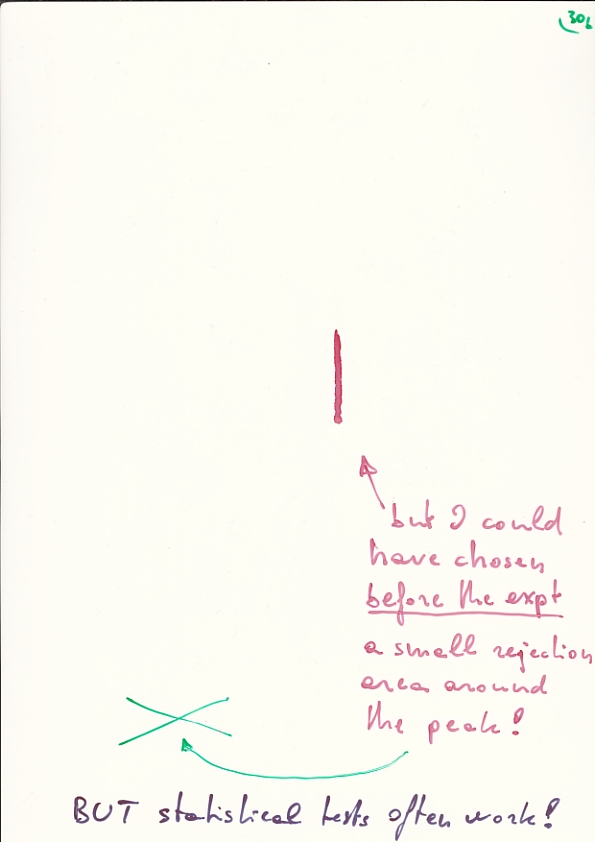 30b
but I could
have chosen
before the expt
a small rejection
area around
the peak!
BUT statistical tests often work!